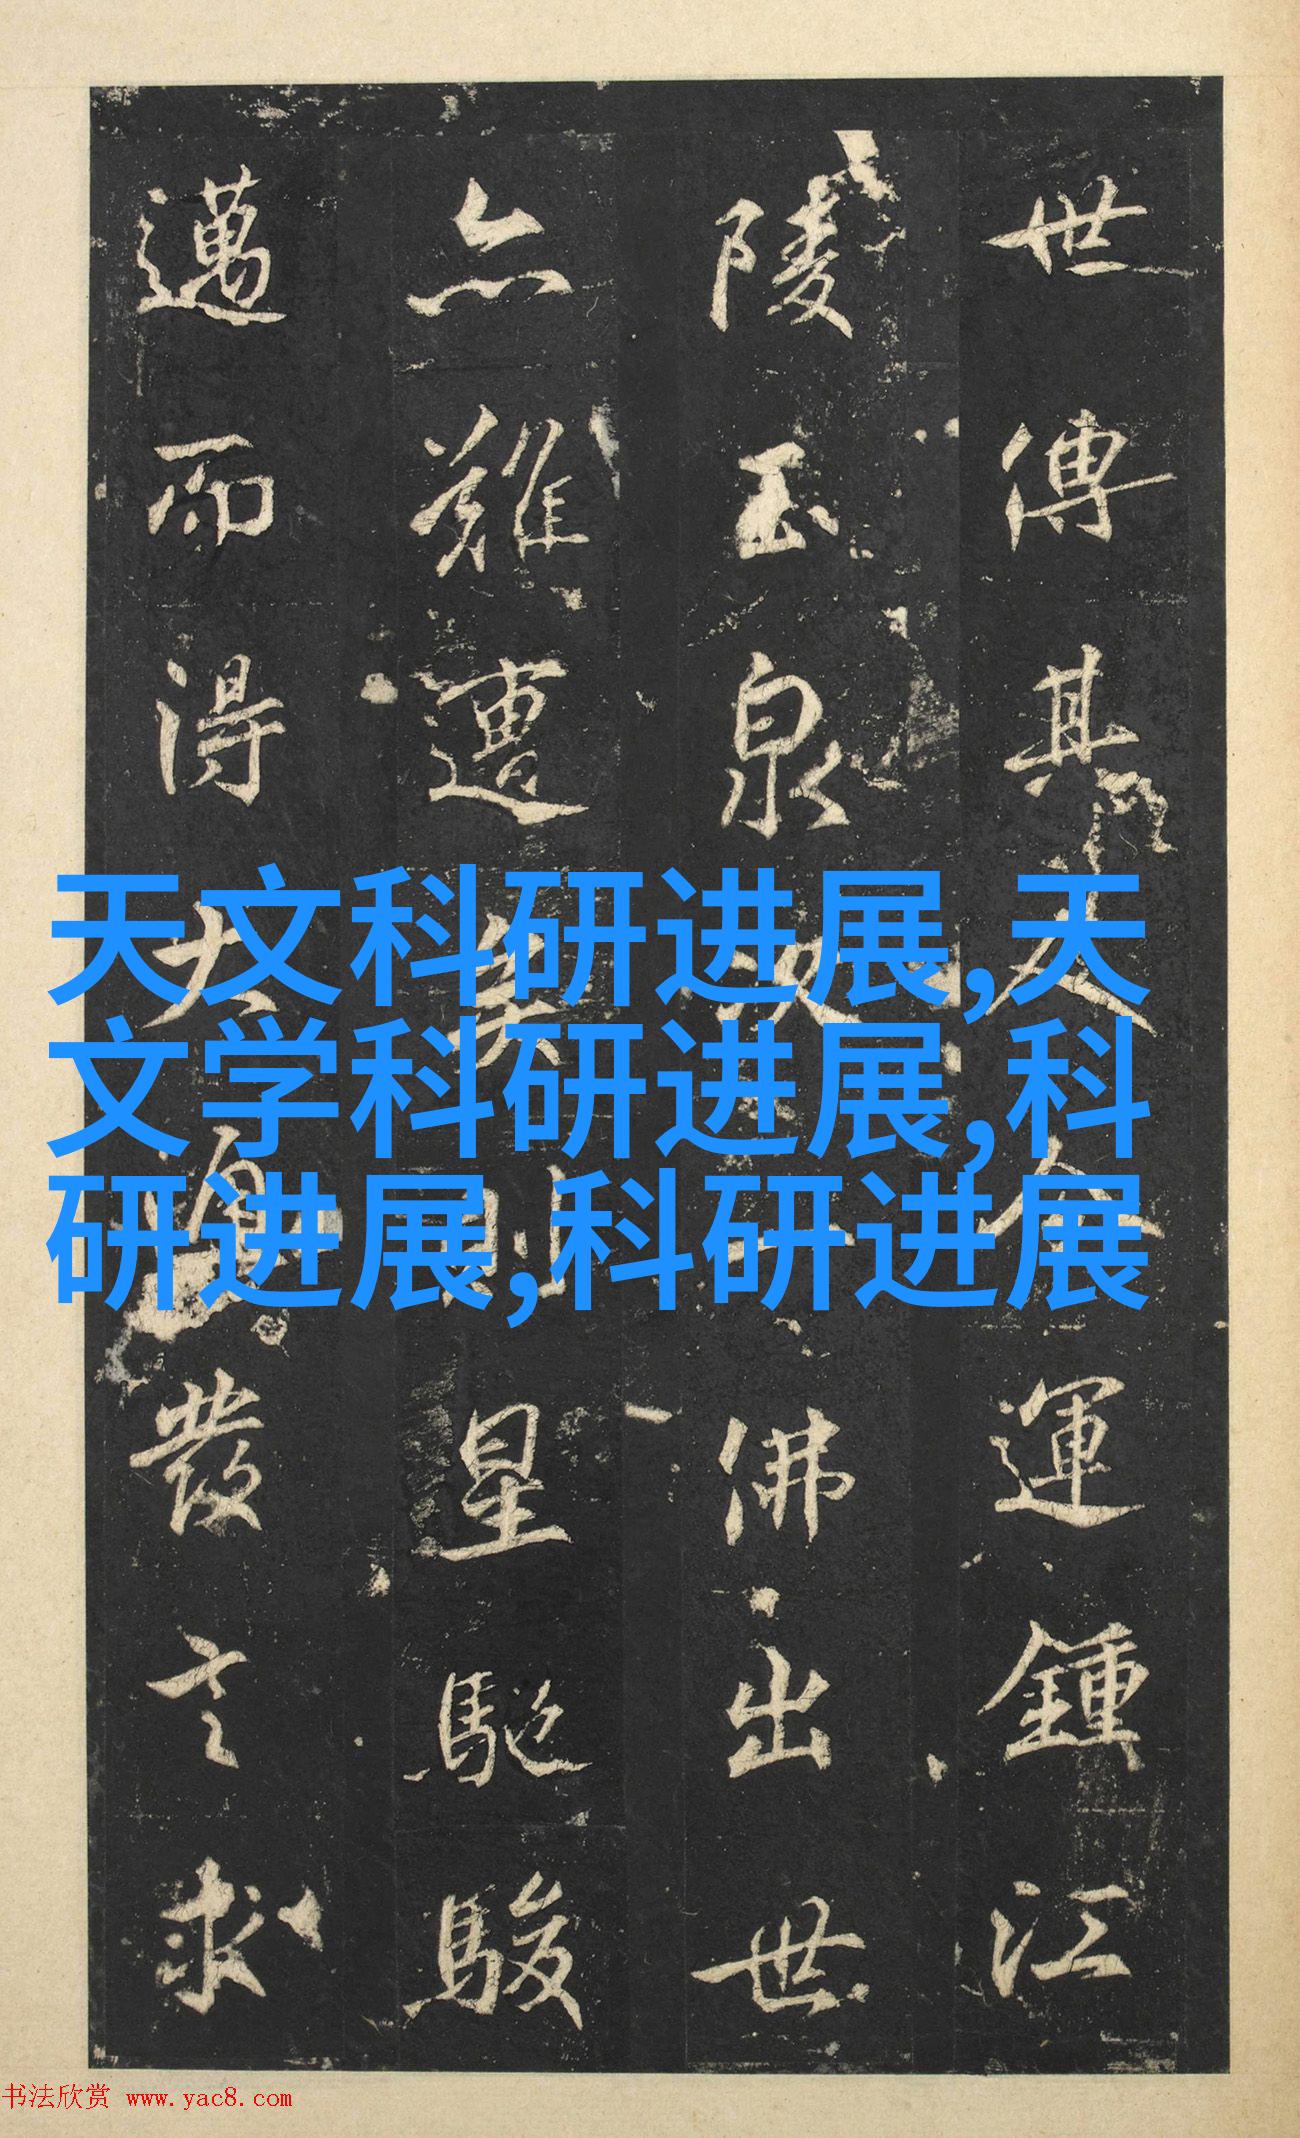 世傳其人今運鍾江
陵玉泉佛出世
亦難遭矣星馳駿
邁而得大發言求
天文科研进展,天
文学科研进展,科
研进展,科研进展
书法欣赏 www.yac8.com